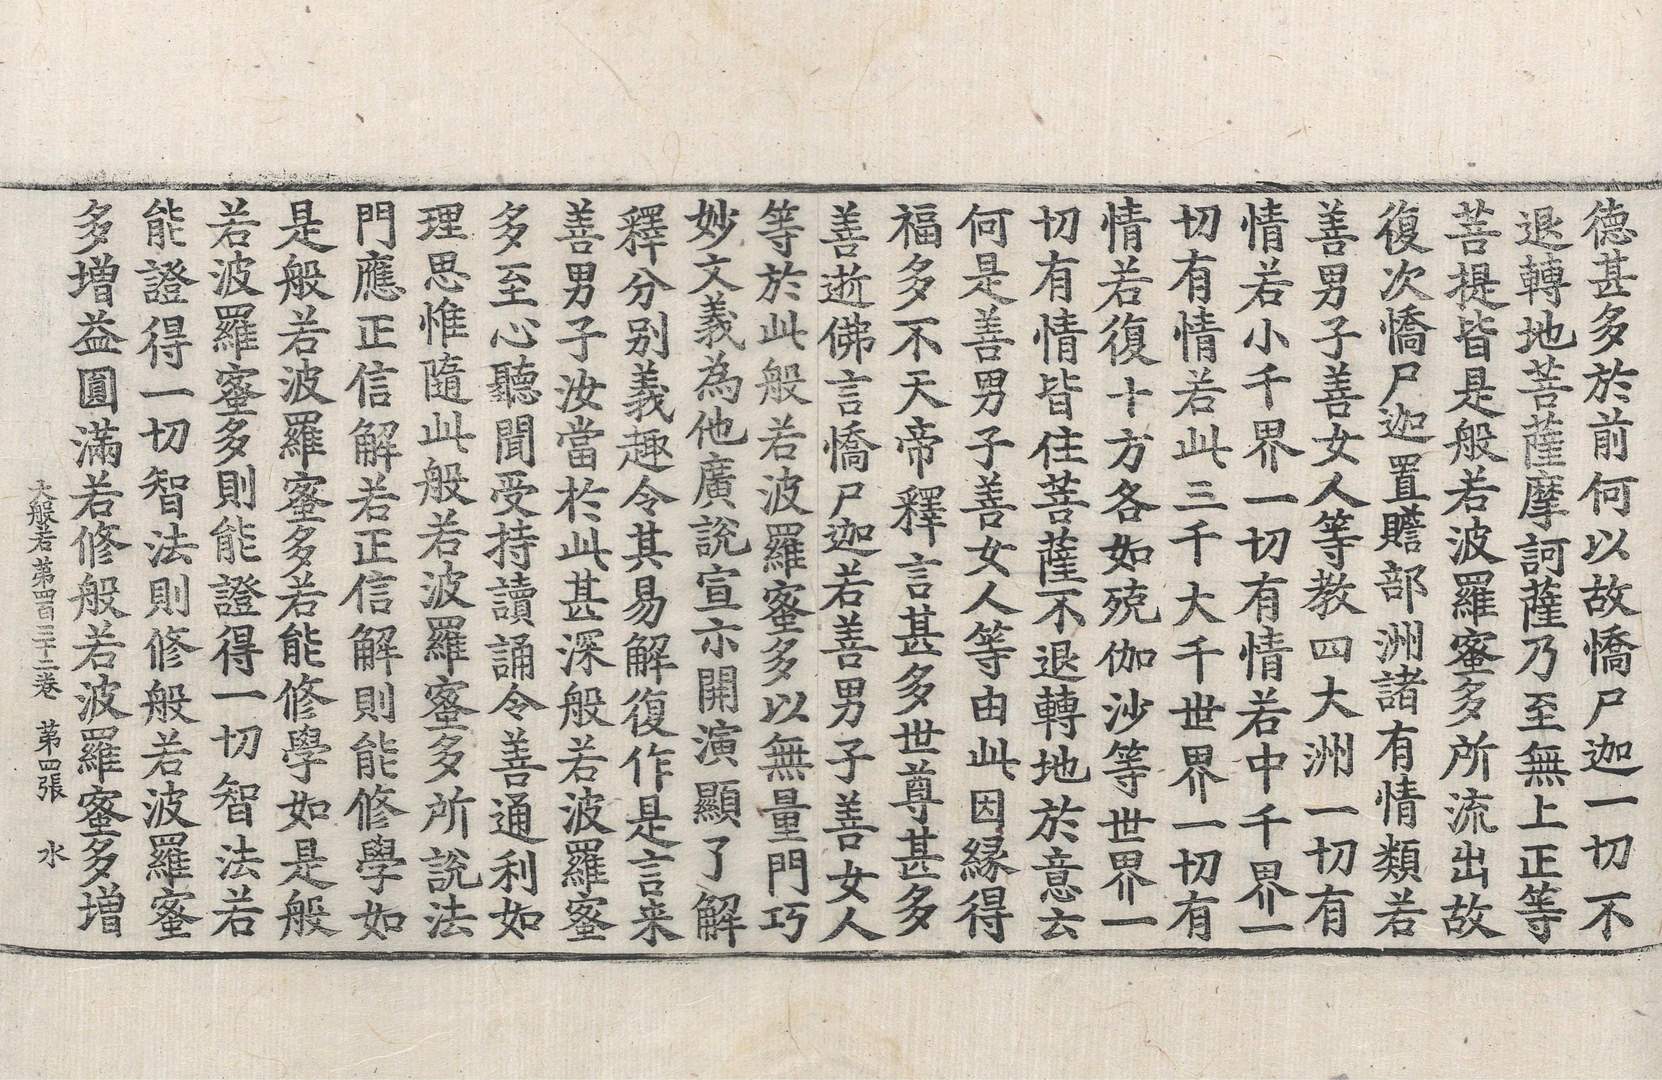 德甚多於前何以故憍尸迦一切不
退轉地菩薩摩訶薩乃至無上正等
菩提皆是般若波羅蜜多所流出故
復次憍尸迦置贍部洲諸有情類若
善男子善女人等教四大洲一切有
情若小千界一切有情若中千界一
切有情若此三千大千世界一切有
情若復十方各如殑伽沙等世界一
切有情皆住菩薩不退轉地於意云
何是善男子善女人等由此因緣得
福多不天帝釋言甚多世尊甚多
善逝佛言憍尸迦若善男子善女人
等於此般若波羅蜜多以無量門巧
妙文義為他廣說宣示開演顯了解
釋分別義趣令其易解復作是言来
善男子汝當於此甚深般若波羅蜜
多至心聽聞受持讀誦令善通利如
理思惟隨此般若波羅蜜多所說法
門應正信解若正信解則能修學如
是般若波羅蜜多若能修學如是般
若波羅蜜多則能證得一切智法若
能證得一切智法則修般若波羅蜜
多增益圓滿若修般若波羅蜜多增
大般若第四百三十二卷 第四張 水